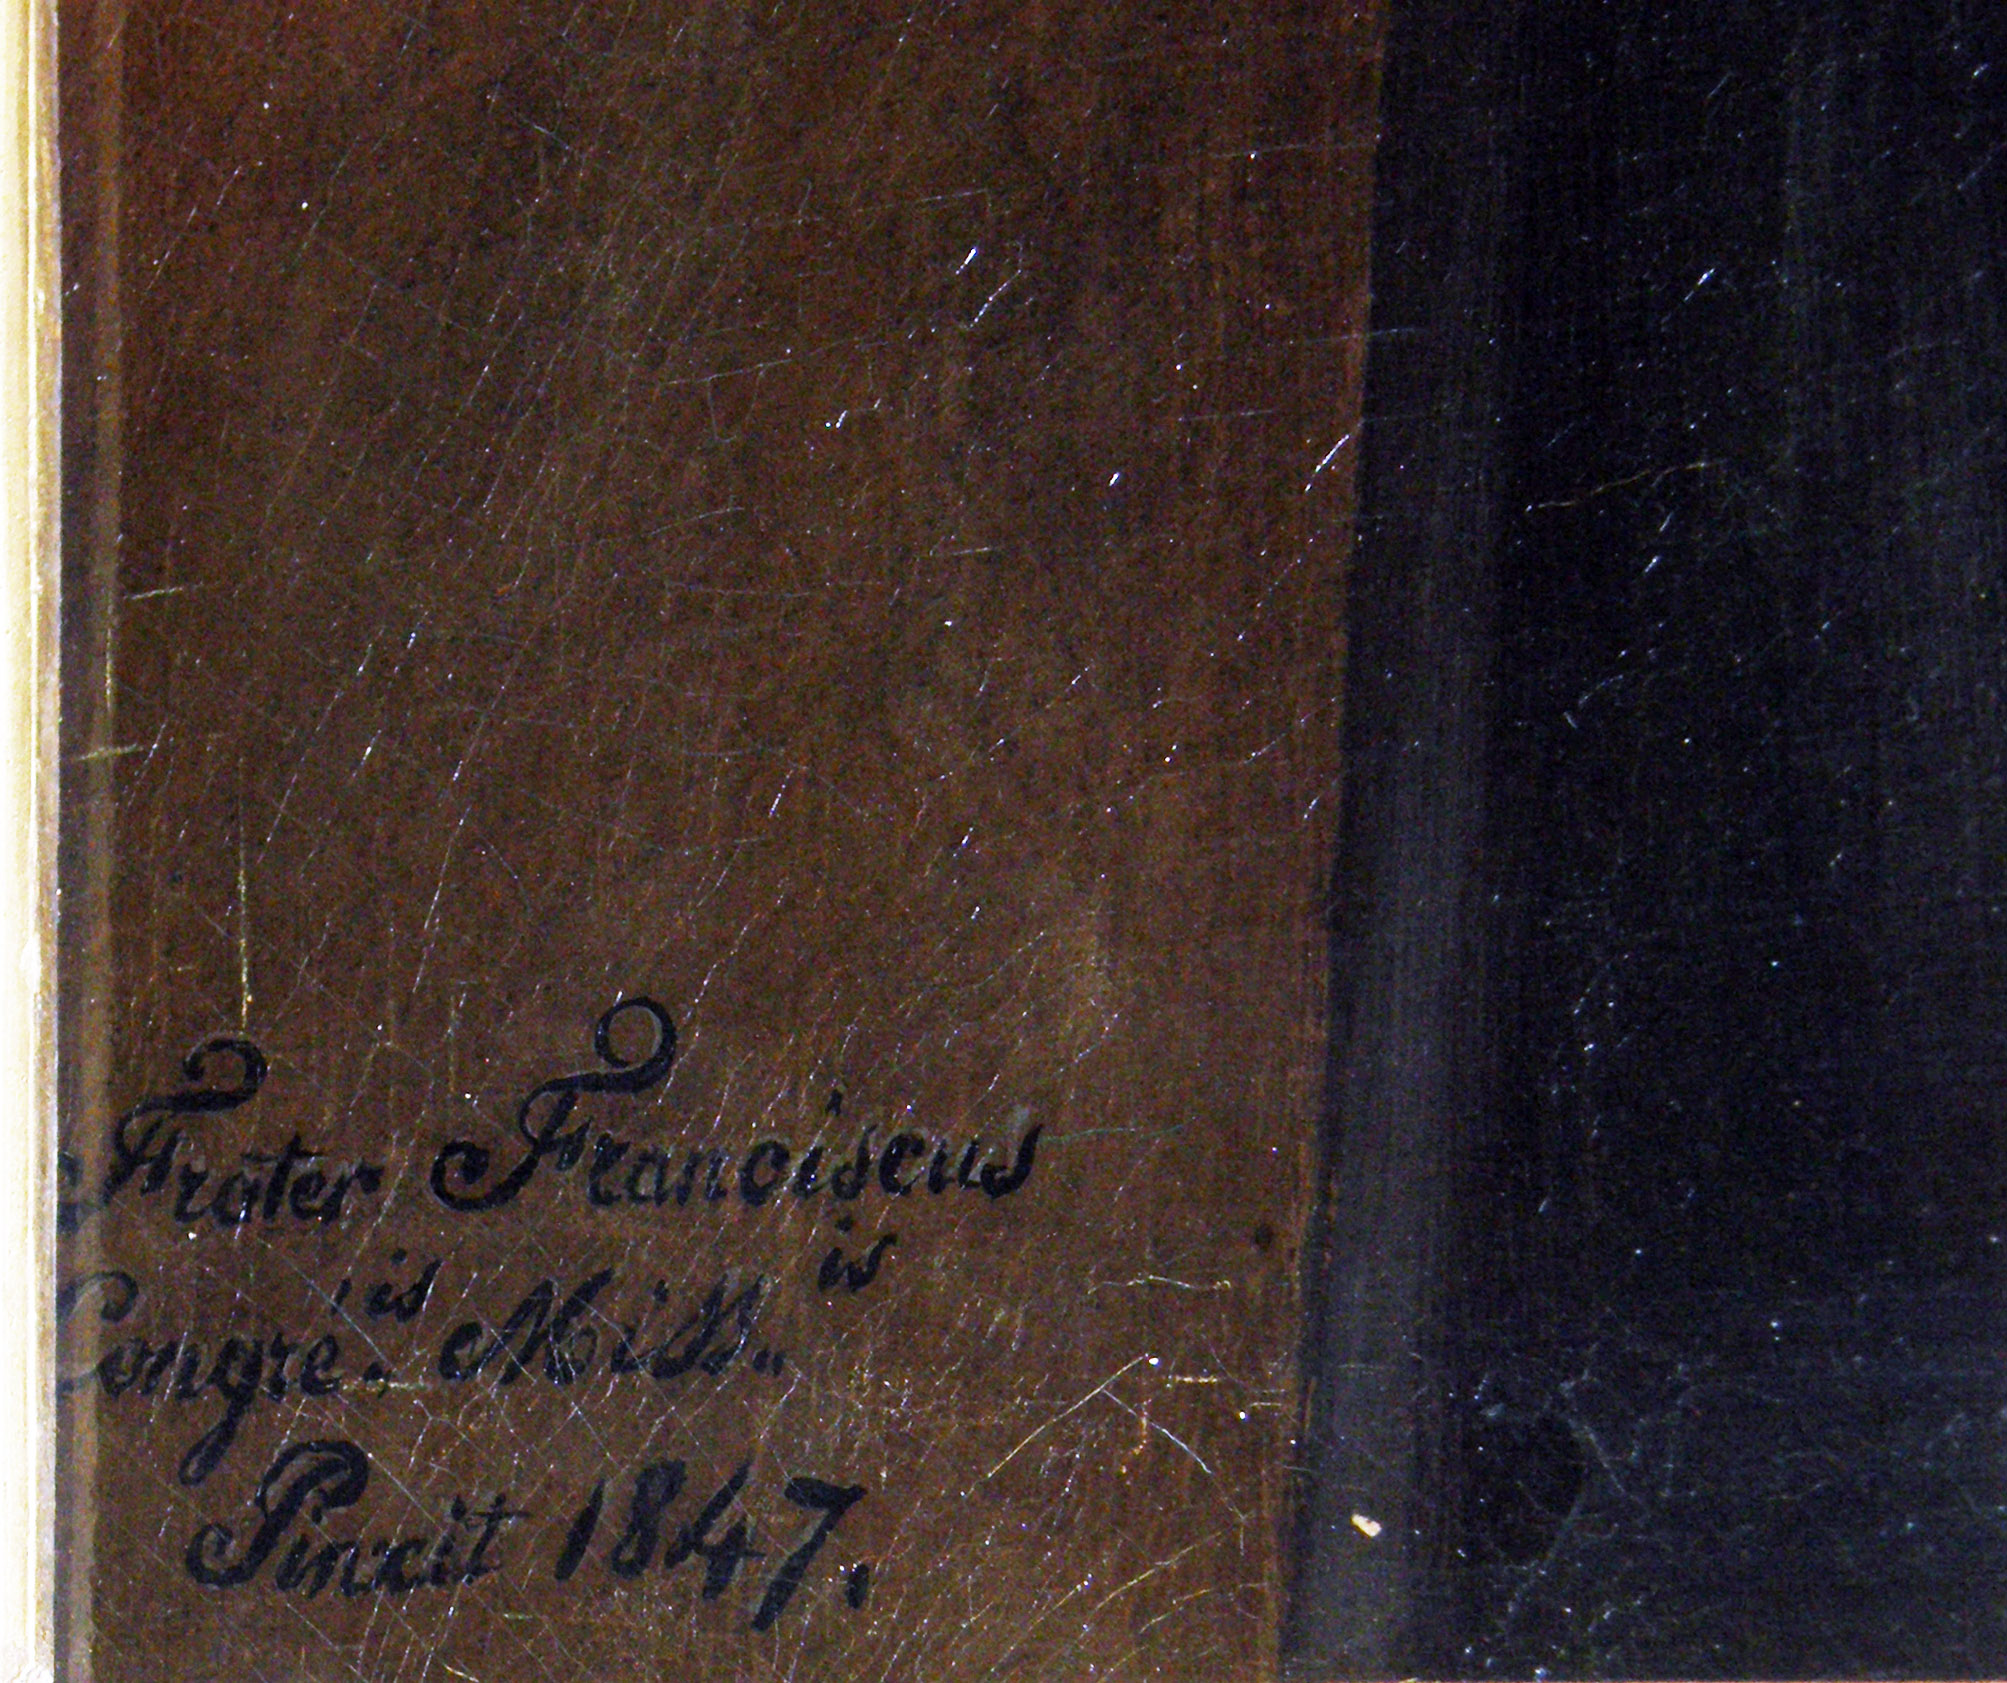 Frater Franciscus
Congre.is Miss.is
Pinxit 1847.